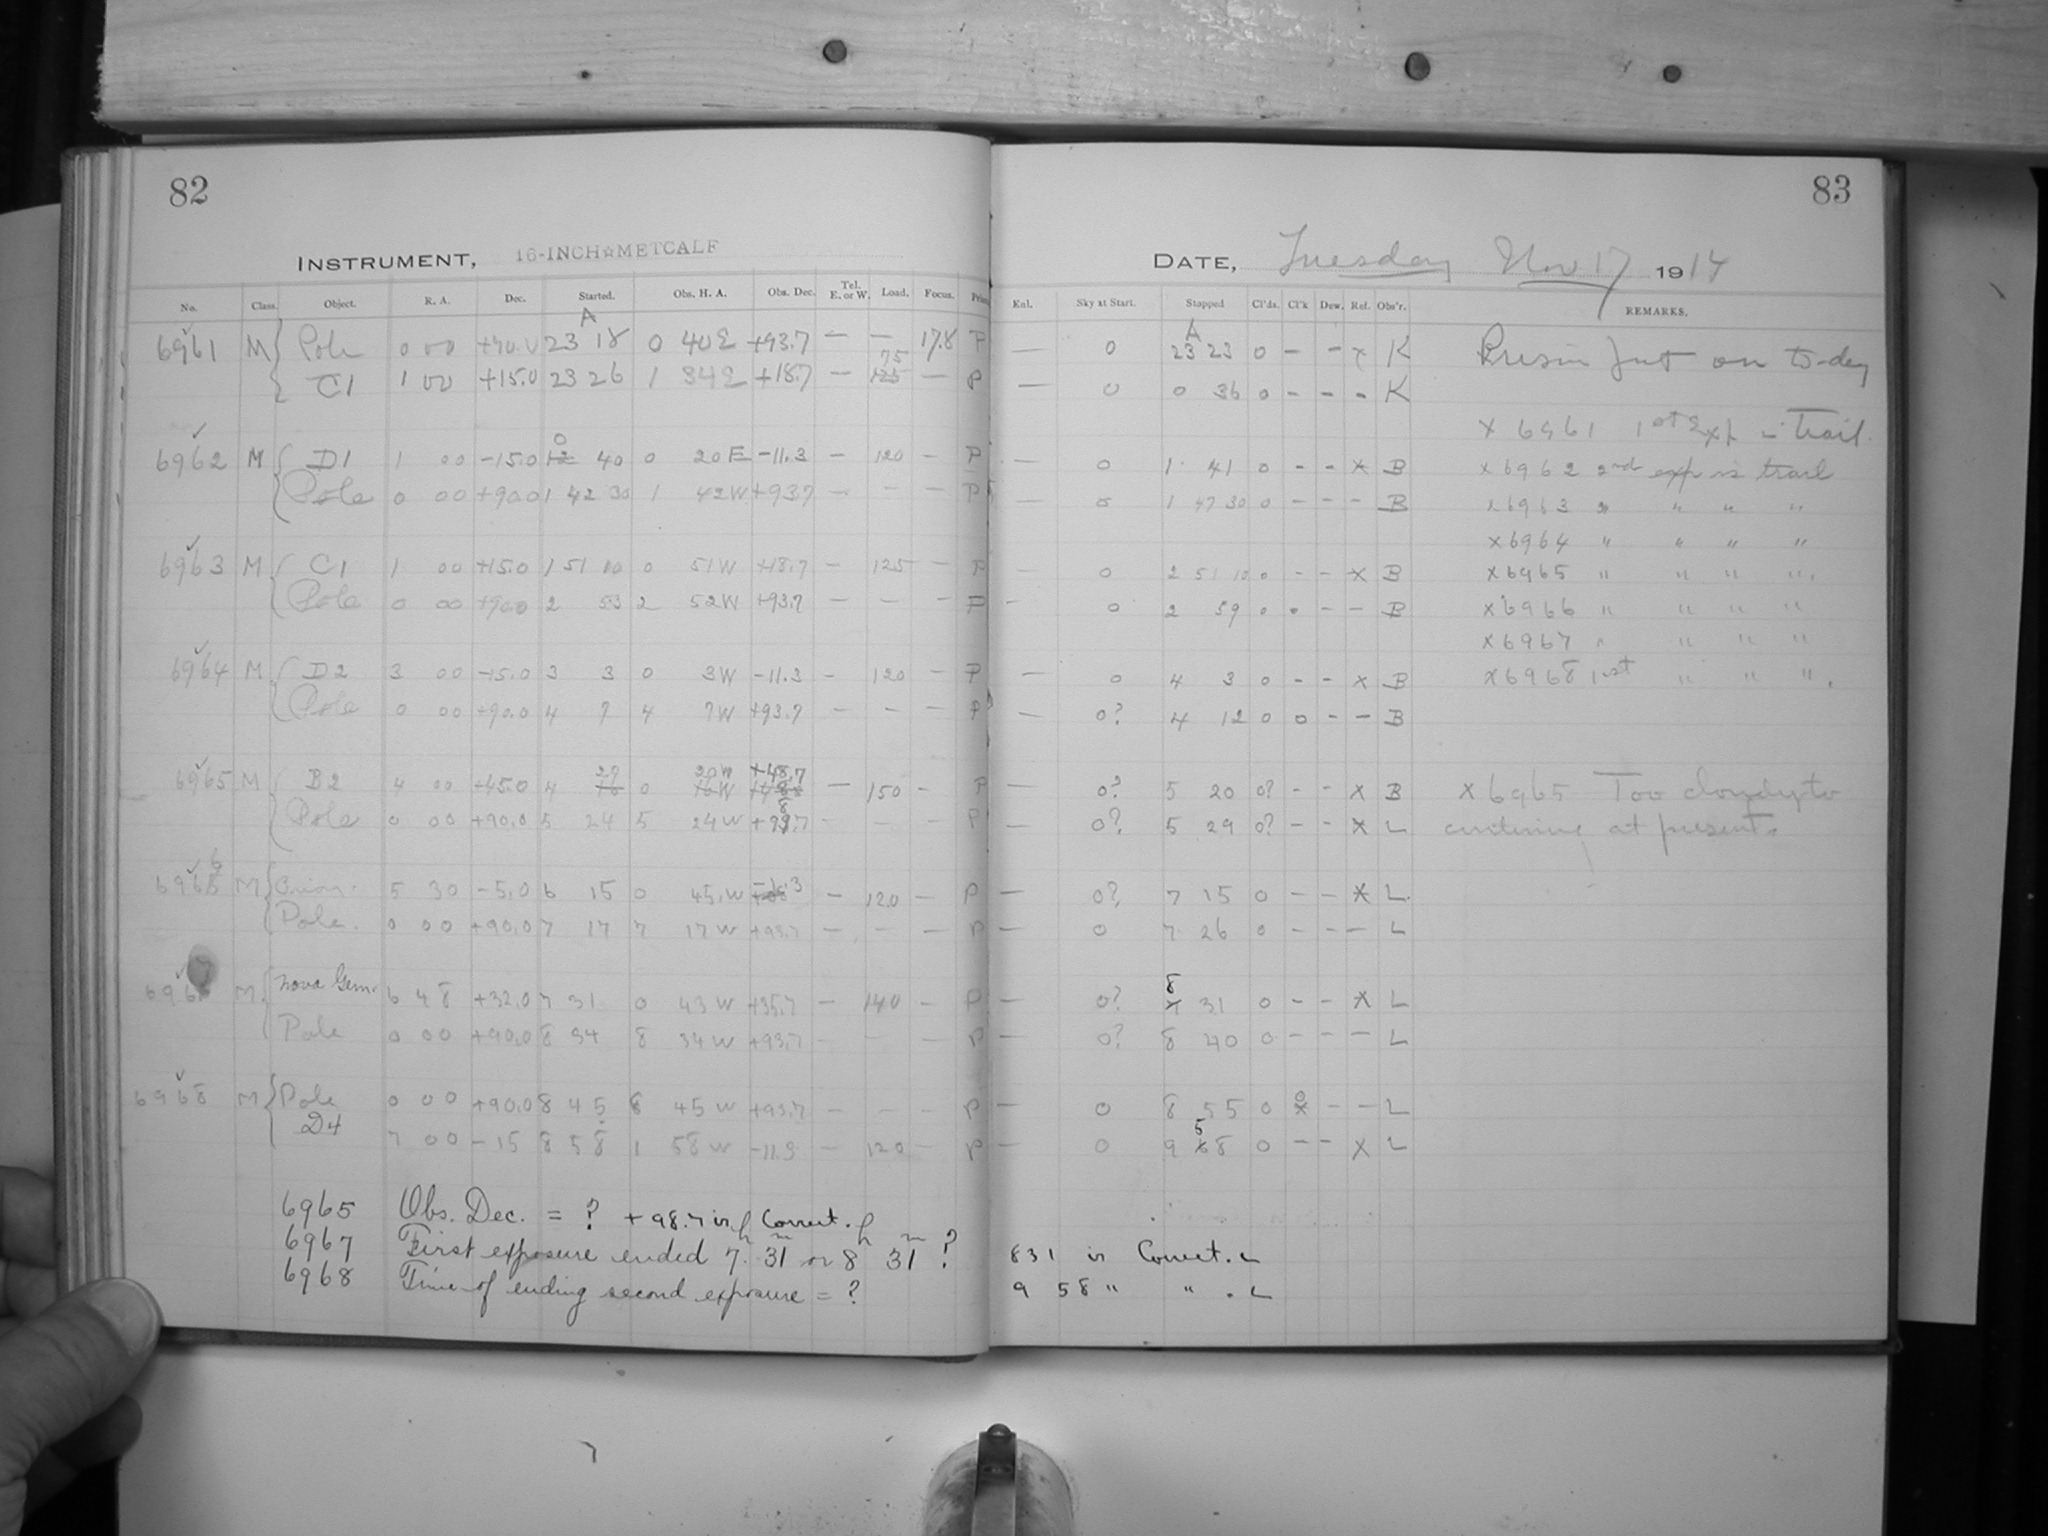 82
INSTRUMENT, 16-INCH☆METCALF
No. Class. Object. R. A. Dec. Started. Obs. H. A. Obs. Dec. Tel. E. or W. Load. Focus.
6961 M Pole 0 00 +90.0 A 23 18 0 40E +93.7 — — 17.8 P
C1 1 00 +15.0 23 26 1 34E +18.7 — 75 — P
6962 M D1 1 00 -15.0 0 40 0 20E -11.3 - 120 - P
Pole 0 00 +90.0 1 42 30 1 42W +93.7 - - - P
6963 M C1 1 00 +15.0 1 51 10 0 51W +18.7 - 125 - P
Pole 0 00 +90.0 2 53 2 52W +93.7 - - - P
6964 M D2 3 00 -15.0 3 3 0 3W -11.3 - 120 - P
Pole 0 00 +90.0 4 7 4 7W +93.7 - - - P
6965 M B2 4 00 +45.0 4 20W +48.7 - 150 - P
Pole 0 00 +90.0 5 24 5 24W +98.7 - - - P
6966 M Orion. 5 30 -5.0 6 15 0 45.W - 120 - P
Pole. 0 00 +90.0 7 17 7 17W +93.7 - - - P
6967 M. Nova Gem. 6 48 +32.0 7 31 0 43W +35.7 - 140 - P
Pole 0 00 +90.0 8 34 8 34W +93.7 - - - P
6968 M Pole 0 00 +90.0 8 45 8 45W +93.7 - - - P
D4 7 00 -15 8 58 1 58W -11.3 - 120 - P
6965 Obs. Dec. = ? +98.7 is Correct.
6967 First exposure ended 7h 31m or 8h 31m ?
6968 Time of ending second exposure = ?
83
DATE, Tuesday Nov 17 1914
Enl. Sky at Start. Stopped Cl'ds. Cl'k Dew. Ref. Obs'r. REMARKS.
— 0 A 23 23 0 - - x K Prism put on to-day
— 0 0 36 0 - - - K
x 6961 1st Exp is trail.
- 0 1 41 0 - - x B x 6962 2nd exp is trail
— 0 1 47 30 0 - - - B x 6963 " " " "
x 6964 " " " "
- 0 2 51 10 0 - - x B x 6965 " " " "
- 0 2 59 0 0 - - B x 6966 " " " "
x 6967 " " " "
— 0 4 3 0 - - x B x 6968 1st " " ".
— 0? 4 12 0 0 - - B
— 0? 5 20 0? - - x B x 6965 Too cloudy to
— 0? 5 29 0? - - x L at present.
— 0? 7 15 0 - - x L
— 0 7 26 0 - - - L
— 0? 8 31 0 - - x L
— 0? 8 40 0 - - - L
— 0 8 55 0 - - L
— 0 9 58 0 - - x L
8 31 is Correct. L
9 58 " " . L